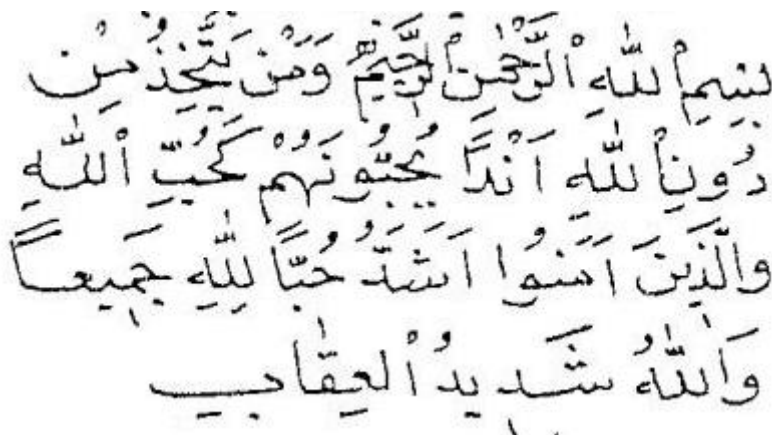 بِسْمِ اللّٰهِ الرَّحْمٰنِ الرَّحِيْمِ وَمَنْ يَتَّخِذُ مِنْ
دُونِ اللّٰهِ اَنْدًا يُحِبُّونَهُمْ كَحُبِّ اللّٰهِ
وَالَّذِيْنَ اٰمَنُوا اَشَدُّ حُبًّا لِلّٰهِ جَمِيعًا
وَاللّٰهُ شَدِيدُ الْعِقَابِ